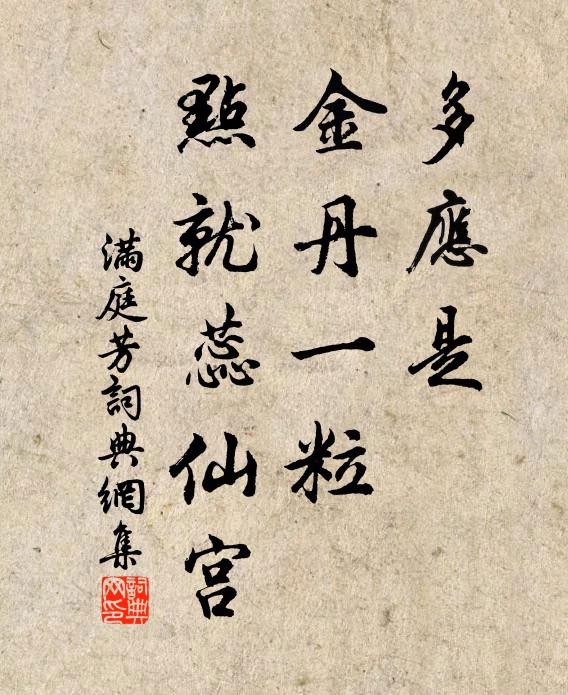 多應是
金丹一粒
點就蕊仙宮
滿庭芳詞典網集
詞典網印